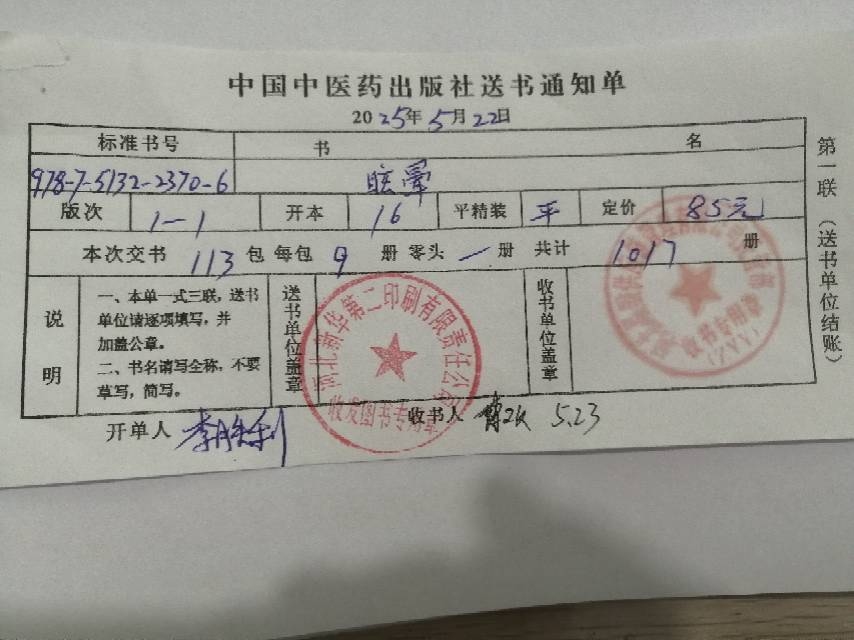 中国中医药出版社送书通知单
2025年5月22日
标准书号 书 名
978-7-5132-2370-6 眩晕
版次 1-1 开本 16 平精装 平 定价 85元
本次交书 113 包 每包 9 册 零头 一 册 共计 1017 册
说明
一、本单一式三联，送书
单位请逐项填写，并
加盖公章。
二、书名请写全称，不要
草写，简写。
送书单位盖章
河北新华第二印刷有限责任公司
收发图书专用章
收书单位盖章
收书专用章
开单人 李胜利
收书人 5.23
第一联（送书单位结账）